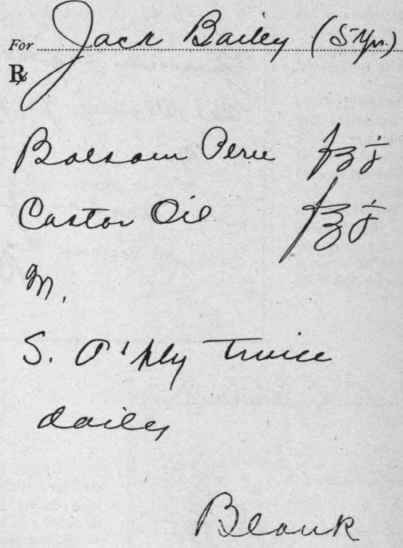 For Jack Bailey (5 Yrs.)
℞
Balsam Peru f℥j
Castor Oil f℥j
M.
S. A'ply twice
daily
Blank